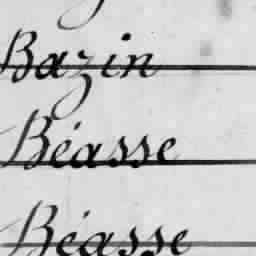 Bazin
Béasse
Béasse